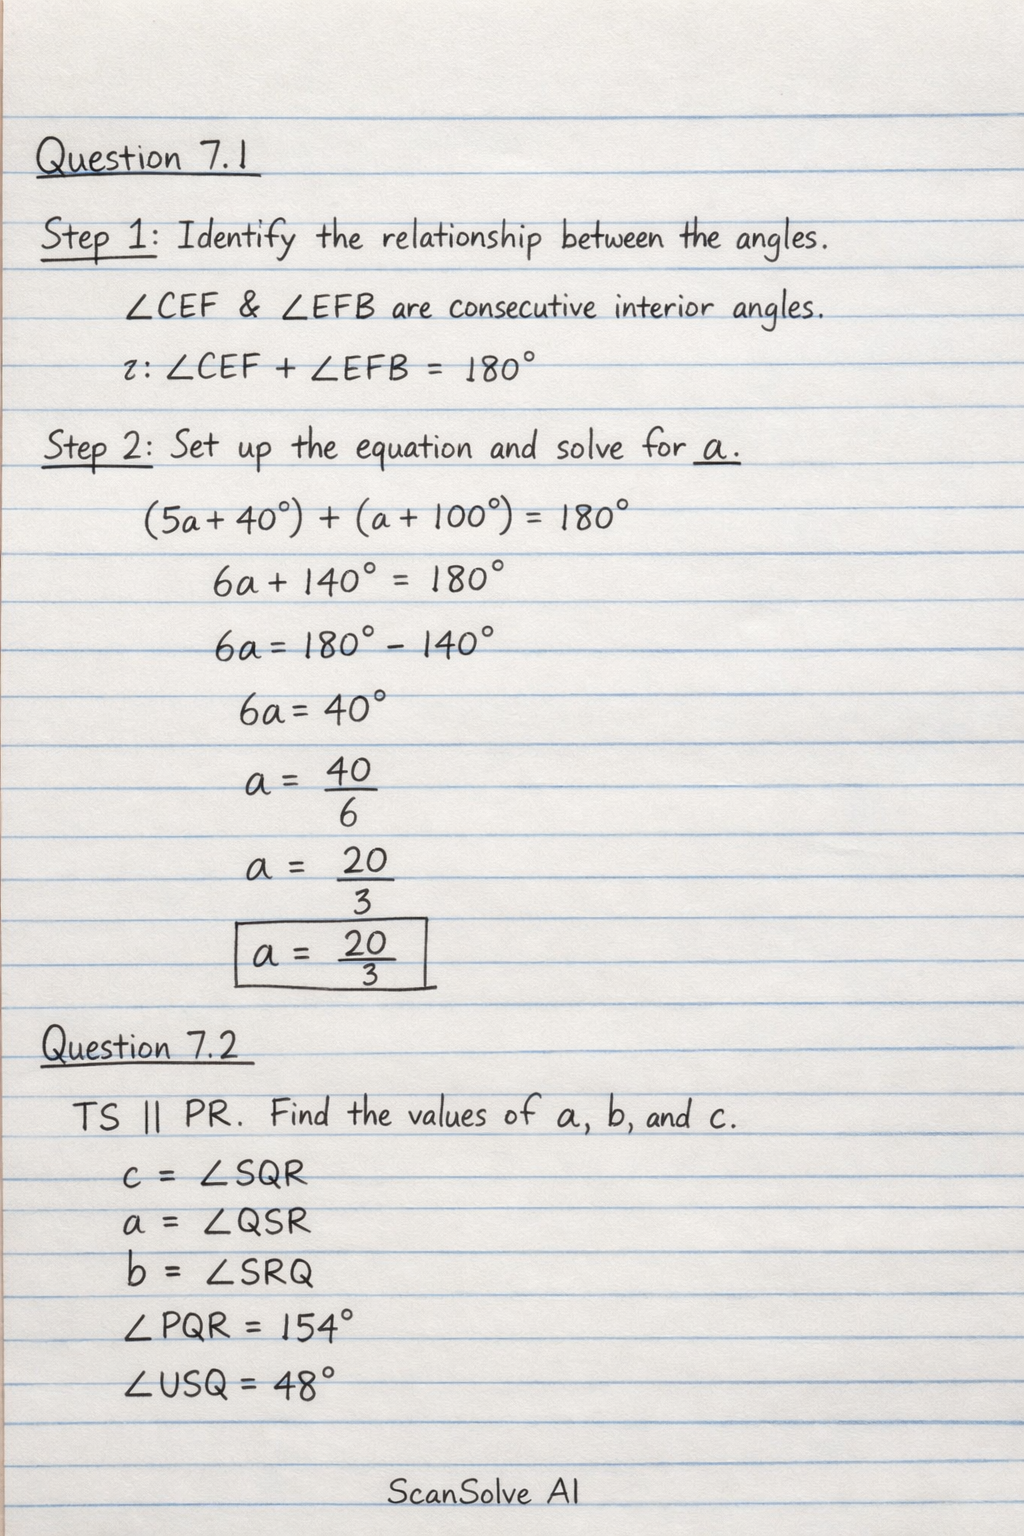 Question 7.1
Step 1: Identify the relationship between the angles.
∠CEF & ∠EFB are consecutive interior angles.
z: ∠CEF + ∠EFB = 180°
Step 2: Set up the equation and solve for a.
(5a + 40°) + (a + 100°) = 180°
6a + 140° = 180°
6a = 180° - 140°
6a = 40°
a = 40/6
a = 20/3
a = 20/3
Question 7.2
TS || PR. Find the values of a, b, and c.
c = ∠SQR
a = ∠QSR
b = ∠SRQ
∠PQR = 154°
∠USQ = 48°
ScanSolve AI